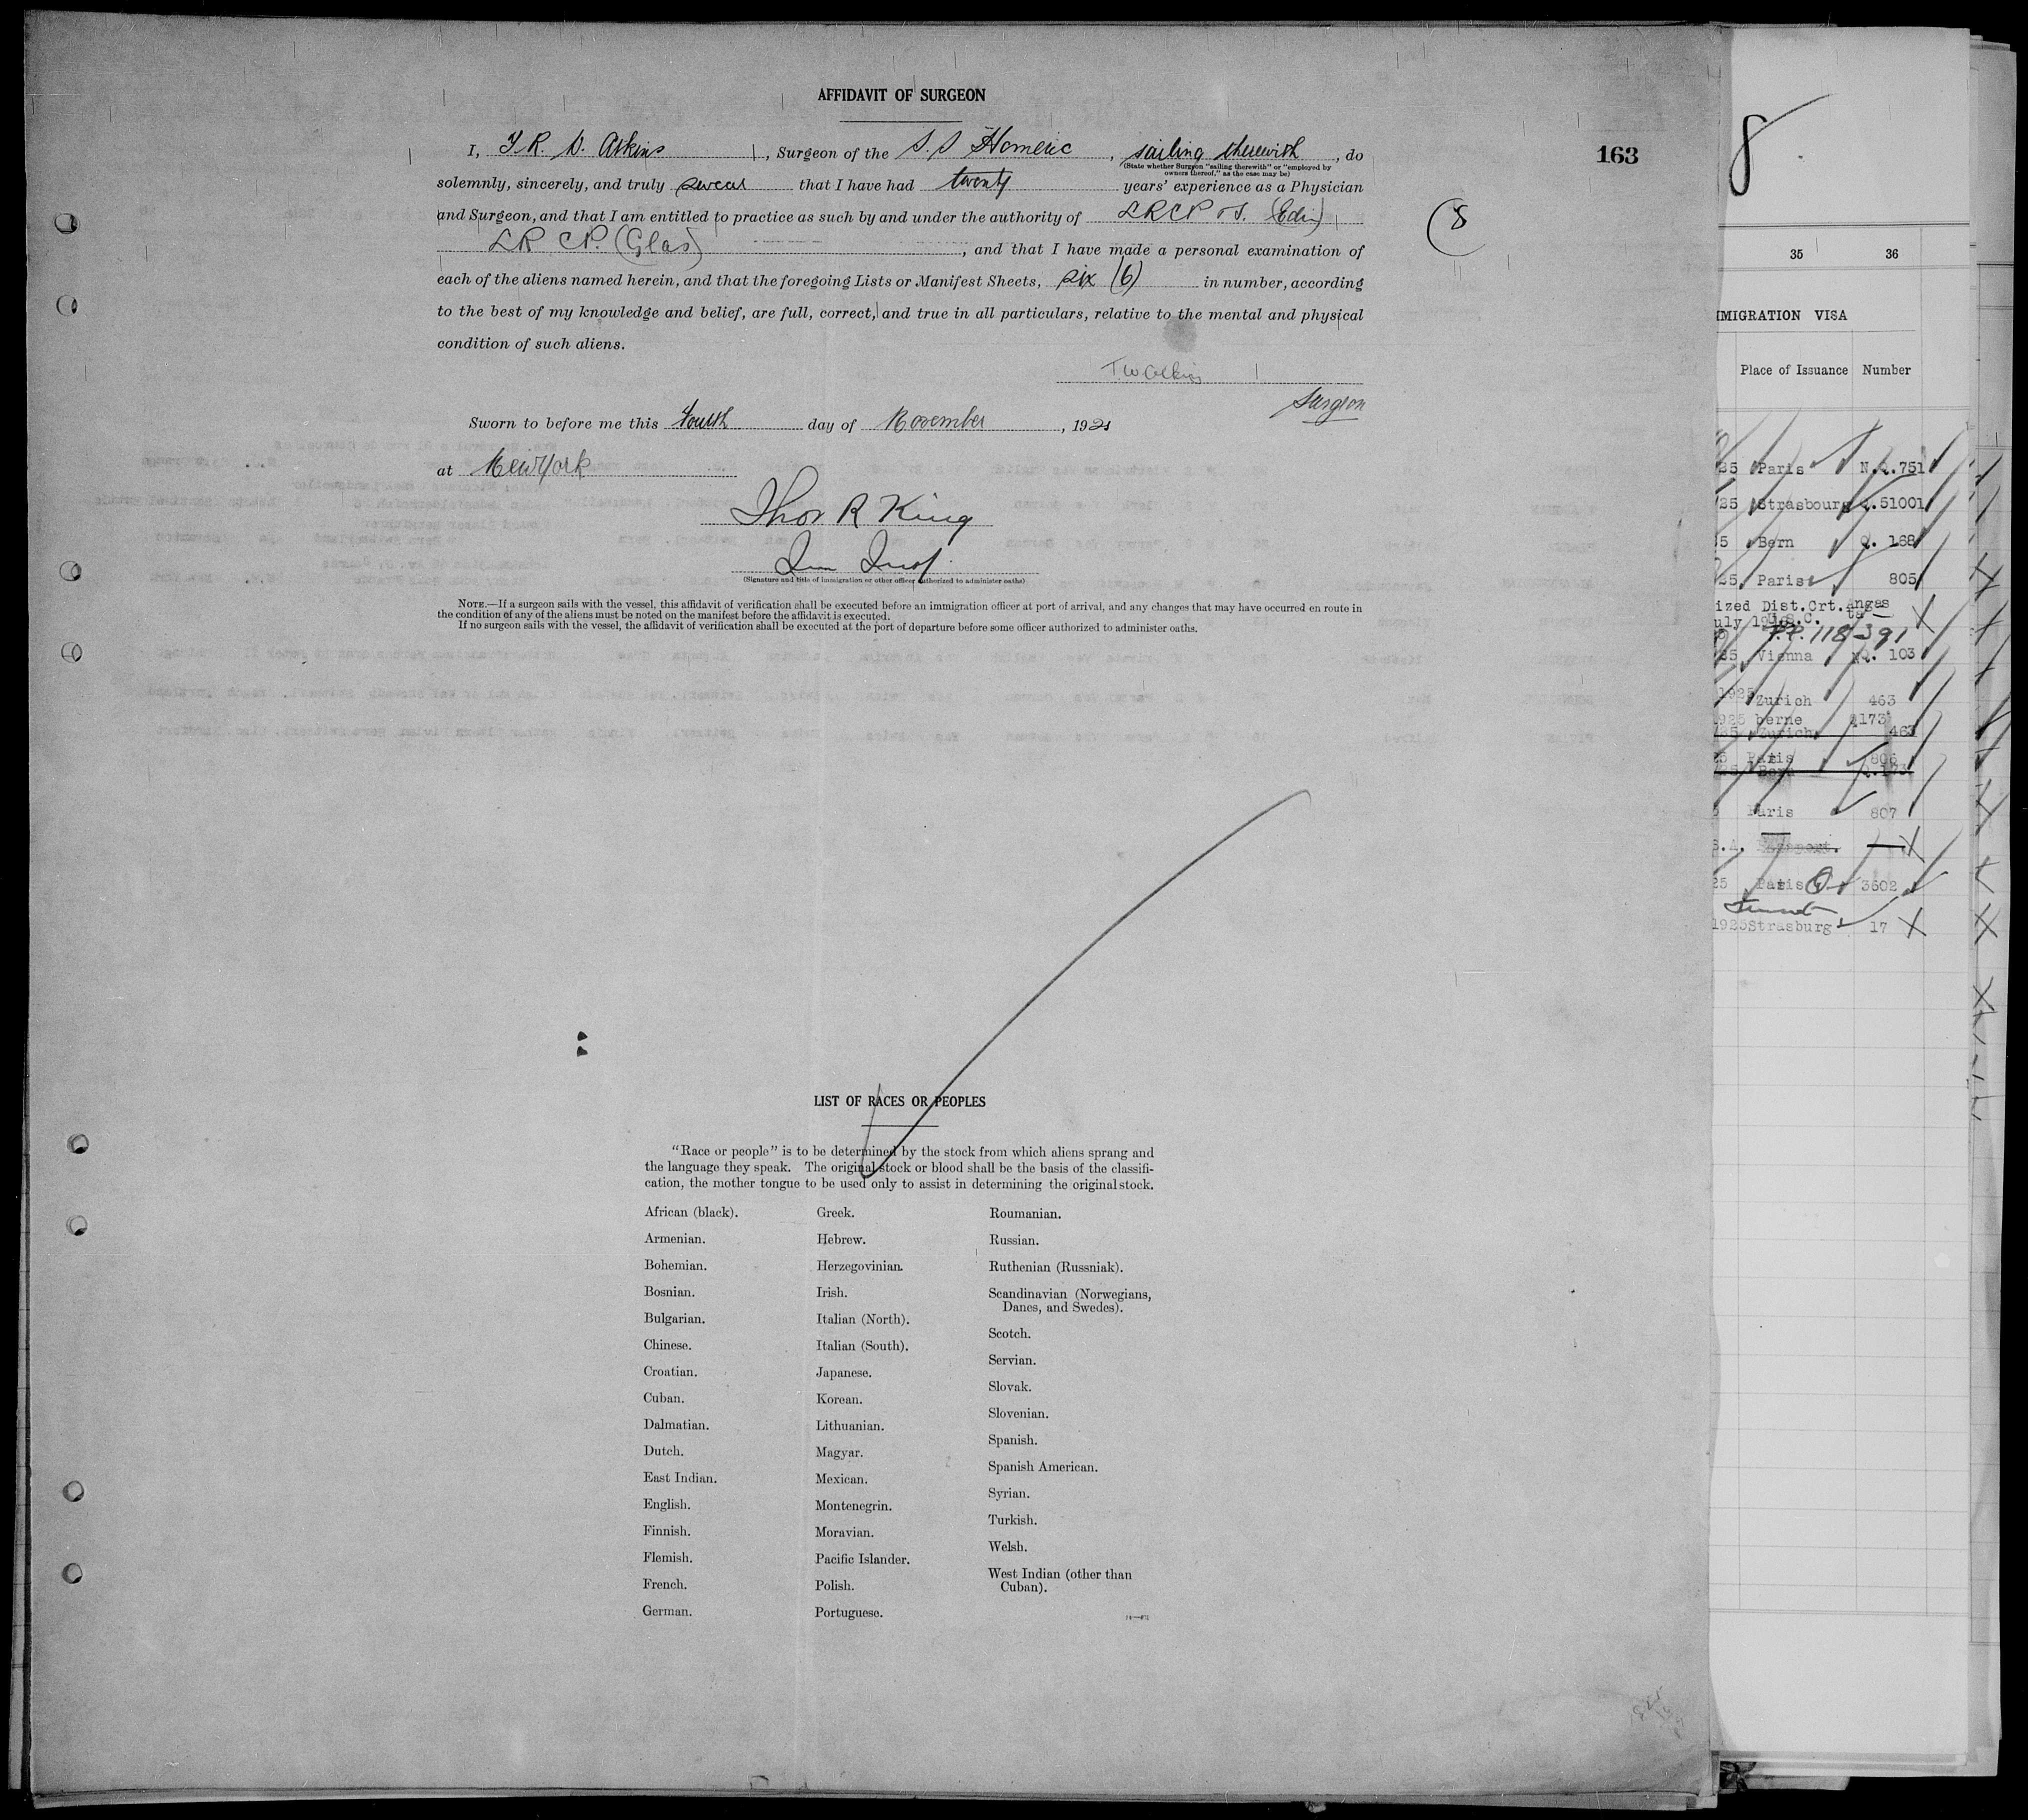 AFFIDAVIT OF SURGEON
I, T. R. W. Atkins, Surgeon of the S. S Homeric, sailing therewith, do
(State whether Surgeon "sailing therewith" or "employed by
owners thereof," as the case may be)
solemnly, sincerely, and truly swear that I have had twenty years' experience as a Physician
and Surgeon, and that I am entitled to practice as such by and under the authority of LRCP & S. (Edin)
LR CP. (Glas), and that I have made a personal examination of
each of the aliens named herein, and that the foregoing Lists or Manifest Sheets, six (6) in number, according
to the best of my knowledge and belief, are full, correct, and true in all particulars, relative to the mental and physical
condition of such aliens.
Surgeon
Sworn to before me this Fourth day of November, 192
at New York
Thos R King
(Signature and title of immigration or other officer authorized to administer oaths)
NOTE.—If a surgeon sails with the vessel, this affidavit of verification shall be executed before an immigration officer at port of arrival, and any changes that may have occurred en route in
the condition of any of the aliens must be noted on the manifest before the affidavit is executed.
If no surgeon sails with the vessel, the affidavit of verification shall be executed at the port of departure before some officer authorized to administer oaths.
163
(8
LIST OF RACES OR PEOPLES
"Race or people" is to be determined by the stock from which aliens sprang and
the language they speak. The original stock or blood shall be the basis of the classifi-
cation, the mother tongue to be used only to assist in determining the original stock.
African (black).
Armenian.
Bohemian.
Bosnian.
Bulgarian.
Chinese.
Croatian.
Cuban.
Dalmatian.
Dutch.
East Indian.
English.
Finnish.
Flemish.
French.
German.
Greek.
Hebrew.
Herzegovinian.
Irish.
Italian (North).
Italian (South).
Japanese.
Korean.
Lithuanian.
Magyar.
Mexican.
Montenegrin.
Moravian.
Pacific Islander.
Polish.
Portuguese.
Roumanian.
Russian.
Ruthenian (Russniak).
Scandinavian (Norwegians,
Danes, and Swedes).
Scotch.
Servian.
Slovak.
Slovenian.
Spanish.
Spanish American.
Syrian.
Turkish.
Welsh.
West Indian (other than
Cuban).
8
35 36
MIGRATION VISA
Place of Issuance Number
25 Paris N.Q.751
25 Strasbourg Q.51001
5 Bern Q. 168
25, Paris 805
ized Dist.Crt.
P.P. 118391
25, Vienna NQ. 103
1925 Zurich 463
1925 berne Q173
25 Zurich 463
25 Paris 806
25 Bern Q.173
Paris 807
S.A.
25 Paris 3602
1925 Strasburg 17